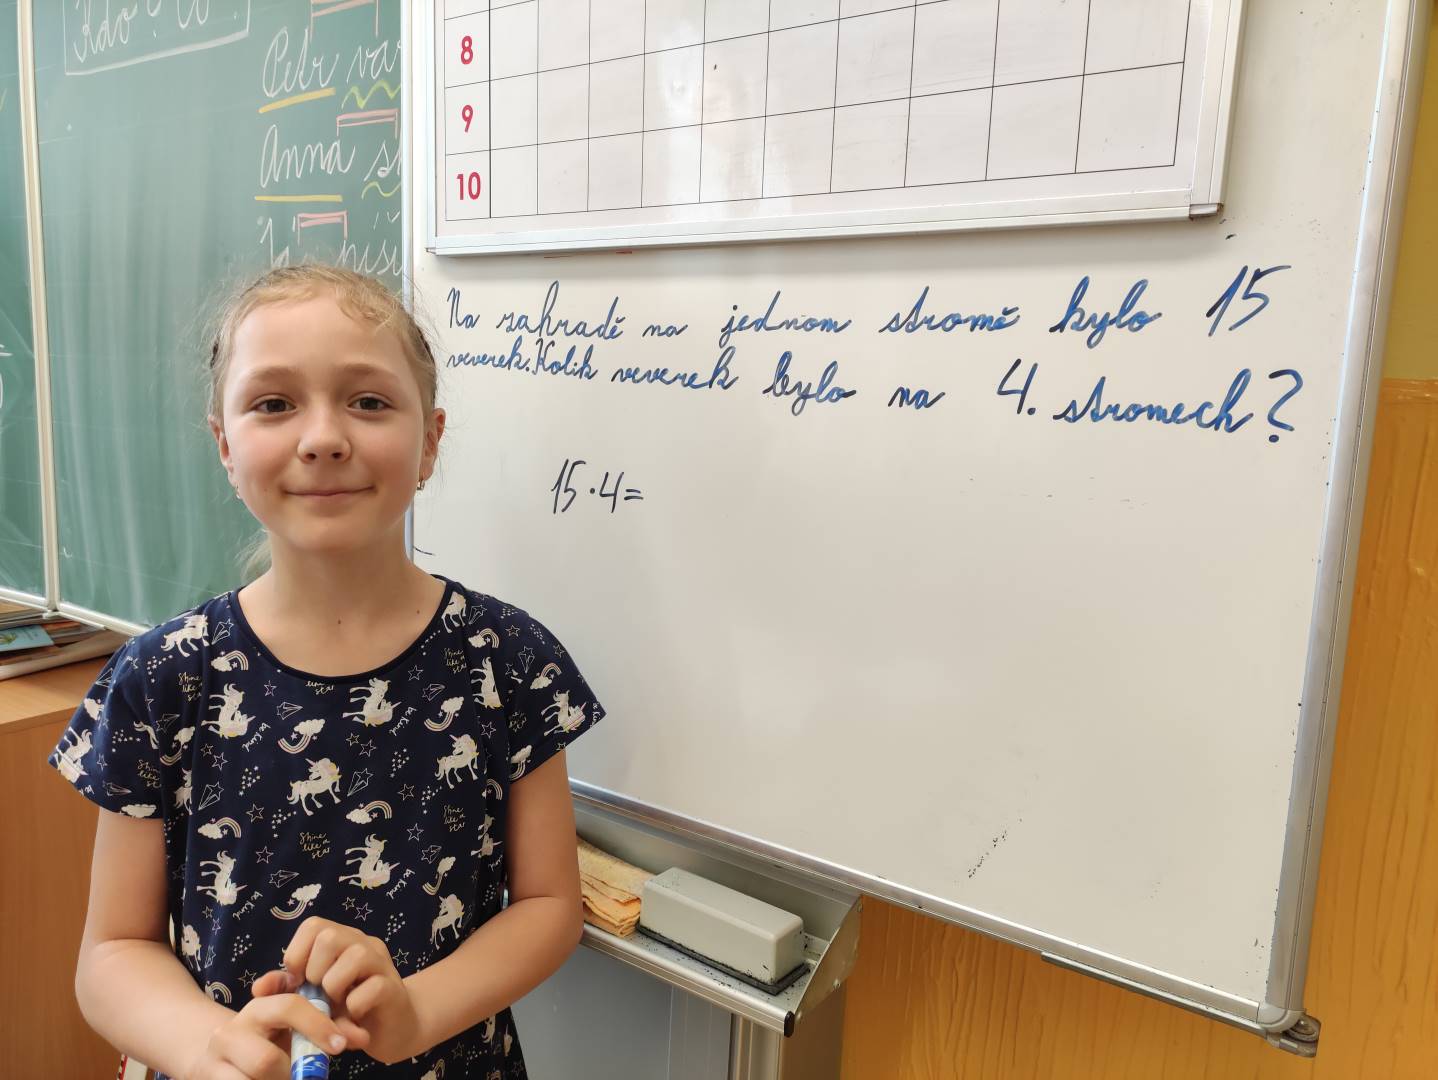 Kdo?
Petr
Anna
8
9
10
Na zahradě na jednom stromě bylo 15
veverek. Kolik veverek bylo na 4. stromech?
15·4=
Shine like a star
be kind